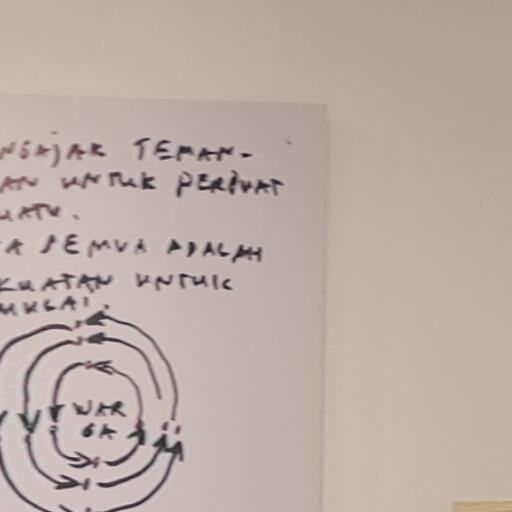 NGAJAK TEMAN-
AN UNTUK PERBUAT
UATU.
A SEMUA ADALAH
KUATAN UNTUK
MULAI.
WAR
GA